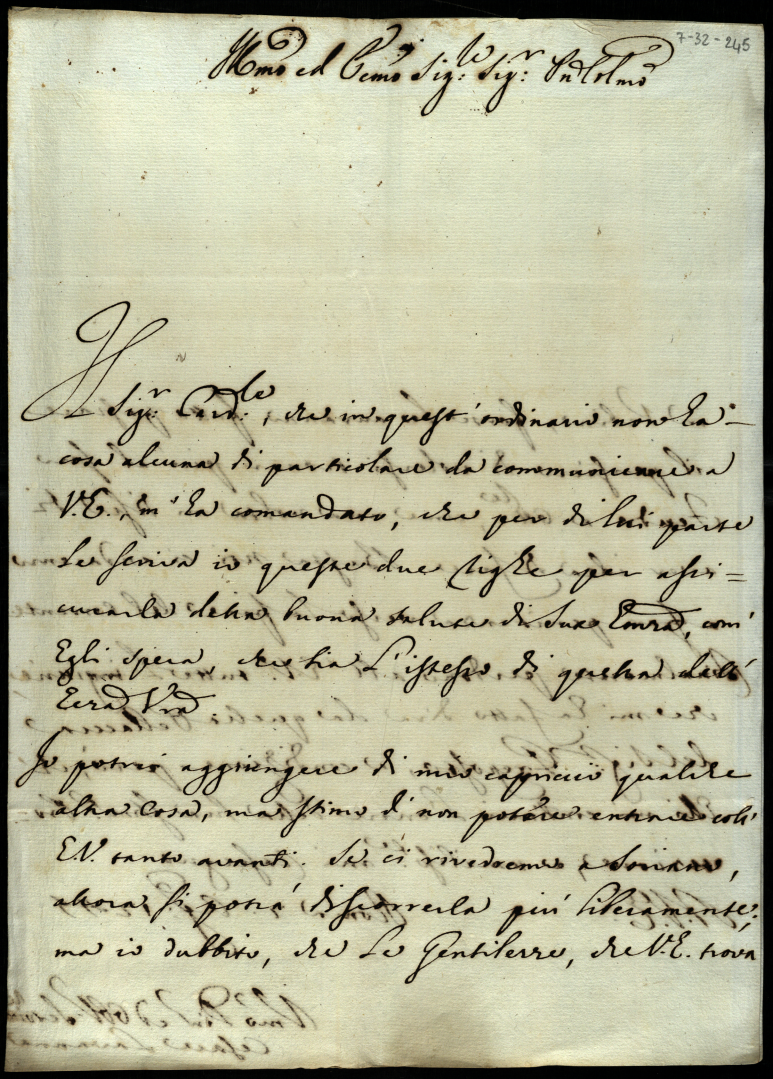 7-32-245
Ill.mo ed Ecc.mo Sig.re Sig.r Pne Colmo
Il Sig.r Card.le, che in quest'ordinario non ha
cosa alcuna di particolare da communicare a
V.E., m'ha comandato, che per di lui parte
Le scriva io queste due righe per assi=
curarla della buona salute di Sua Emza, com'
Egli spera, che sia l'istesso di quella dell'
Ecza Vra
Io potrei aggiungere di mio capriccio qualche
altra cosa, ma stimo di non potere entrare coll'
E.V. tanto avanti. Se ci rivedremo a Soriano,
allora si potrà discorrerla più liberamente;
ma io dubbito, che Le Gentilezze, che V.E. trova